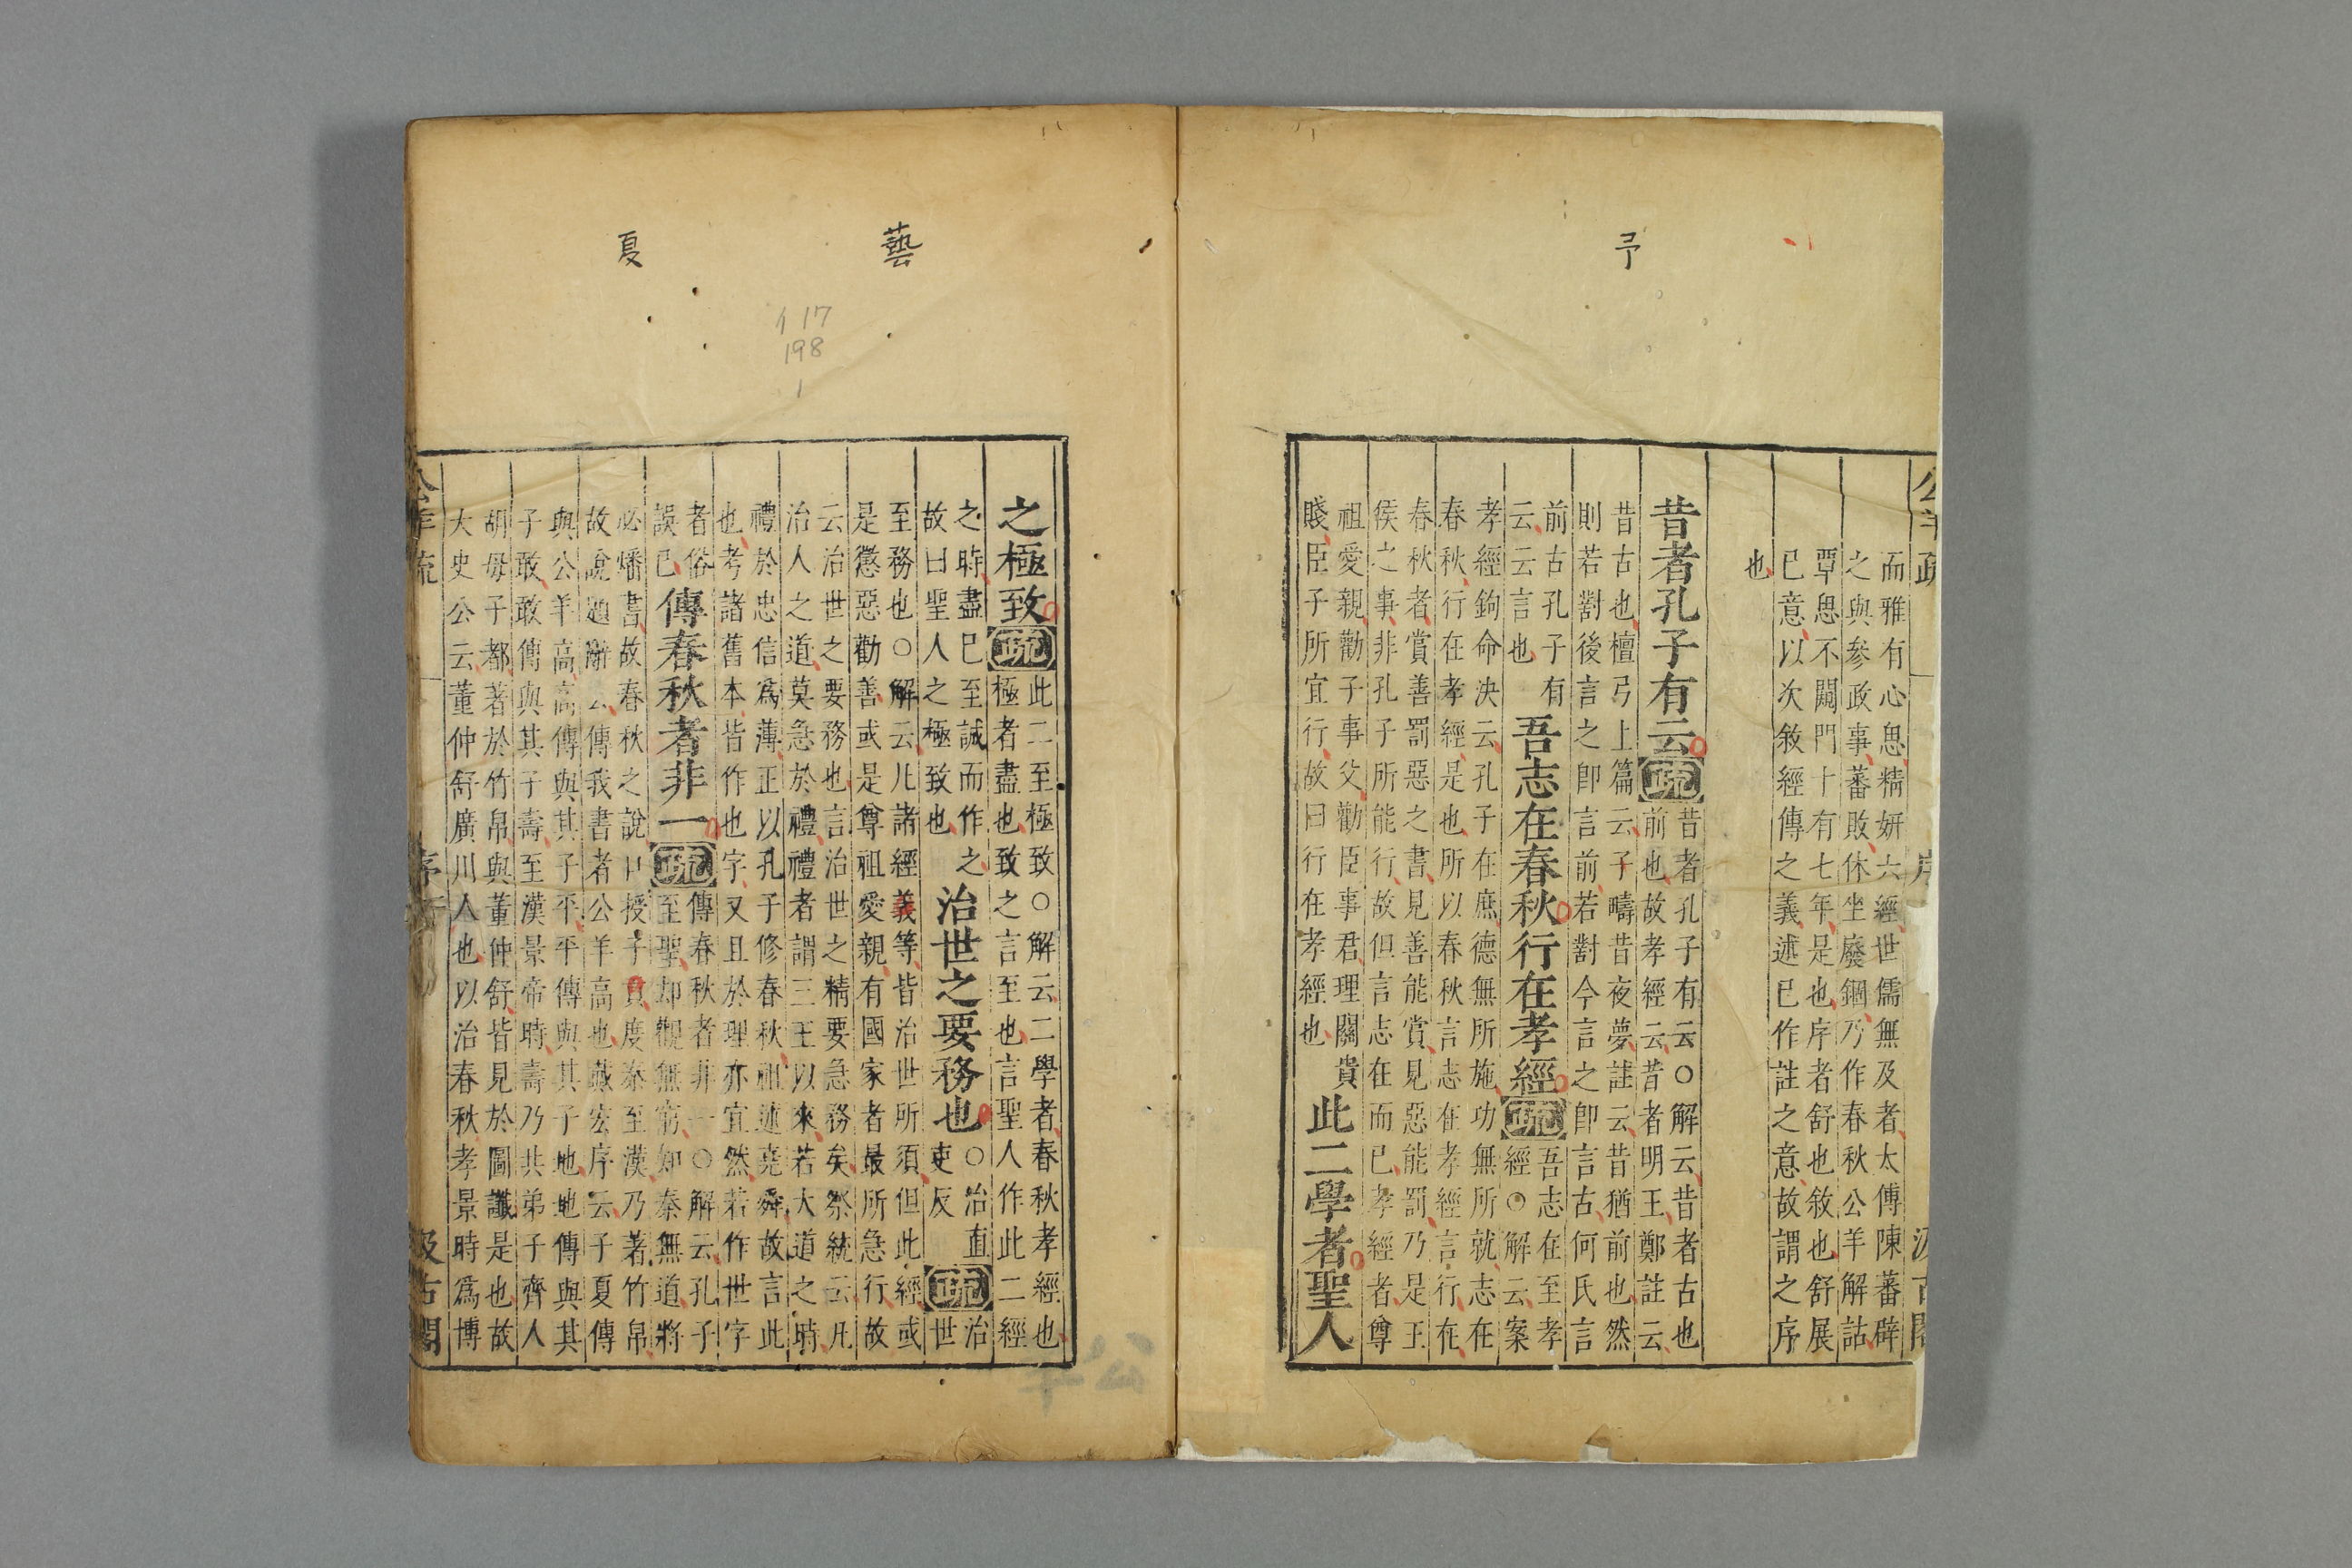 予
公羊疏
序
汲古閣
而雅有心思精姸六經世儒無及者太傅陳蕃辟
之與參政事蕃敗休坐廢錮乃作春秋公羊解詁
覃思不闚門十有七年是也序者舒也敘也舒展
已意以次敘經傳之義述已作註之意故謂之序
也
昔者孔子有云疏昔者孔子有云○解云昔者古也
前也故孝經云昔者明王鄭註云
昔古也檀弓上篇云予疇昔夜夢註云昔猶前也然
則若對後言之即言前若對今言之即言古何氏言
前古孔子有
云云言也
吾志在春秋行在孝經疏吾志在至孝
經○解云案
孝經鉤命決云孔子在庶德無所施功無所就志在
春秋行在孝經是也所以春秋言志在孝經言行在
春秋者賞善罰惡之書見善能賞見惡能罰乃是王
侯之事非孔子所能行故但言志在而已孝經者尊
祖愛親勸子事父勸臣事君理關貴
賤臣子所宜行故曰行在孝經也
此二學者聖人
藝
夏
117
198
1
之極致疏此二至極致○解云二學者春秋孝經也
極者盡也致之言至也言聖人作此二經
之時盡已至誠而作之
故曰聖人之極致也
治世之要務也○治直
吏反
疏治世
至務也○解云凡諸經義等皆治世所須但此經或
是懲惡勸善或是尊祖愛親有國家者最所急行故
云治世之要務也言治世之精要急務矣祭統云凡
治人之道莫急於禮禮者謂三王以來若大道之時
禮於忠信爲薄正以孔子修春秋祖述堯舜故言此
也考諸舊本皆作也字又且於理亦宜然若作世字
者俗
誤已
傳春秋者非一疏傳春秋者非一○解云孔子
至聖却觀無窮知秦無道將
必燔書故春秋之說口授子夏度秦至漢乃著竹帛
故說題辭云傳我書者公羊高也戴宏序云子夏傳
與公羊高高傳與其子平平傳與其子地地傳與其
子敢敢傳與其子壽至漢景帝時壽乃共弟子齊人
胡毋子都著於竹帛與董仲舒皆見於圖讖是也故
大史公云董仲舒廣川人也以治春秋孝景時爲博